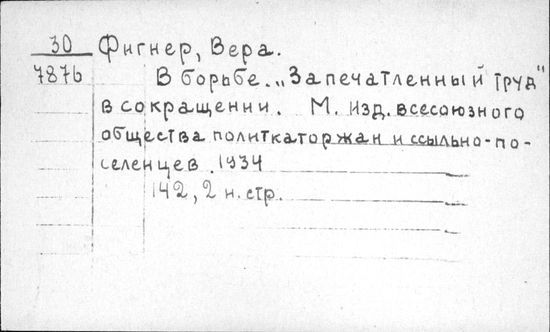 30 Фигнер, Вера.
7876 В борьбе. „Запечатленный труд"
в сокращении. М. Изд. всесоюзного
общества политкаторжан и ссыльно-по-
селенцев. 1934
142, 2 н. стр.